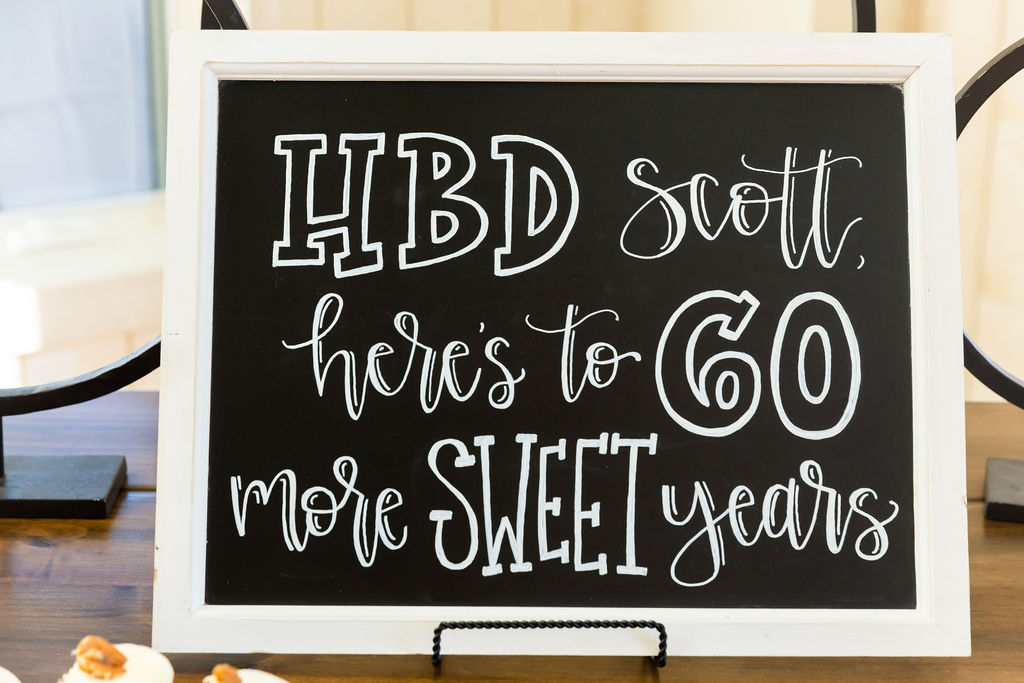 HBD Scott,
here's to 60
more SWEET years